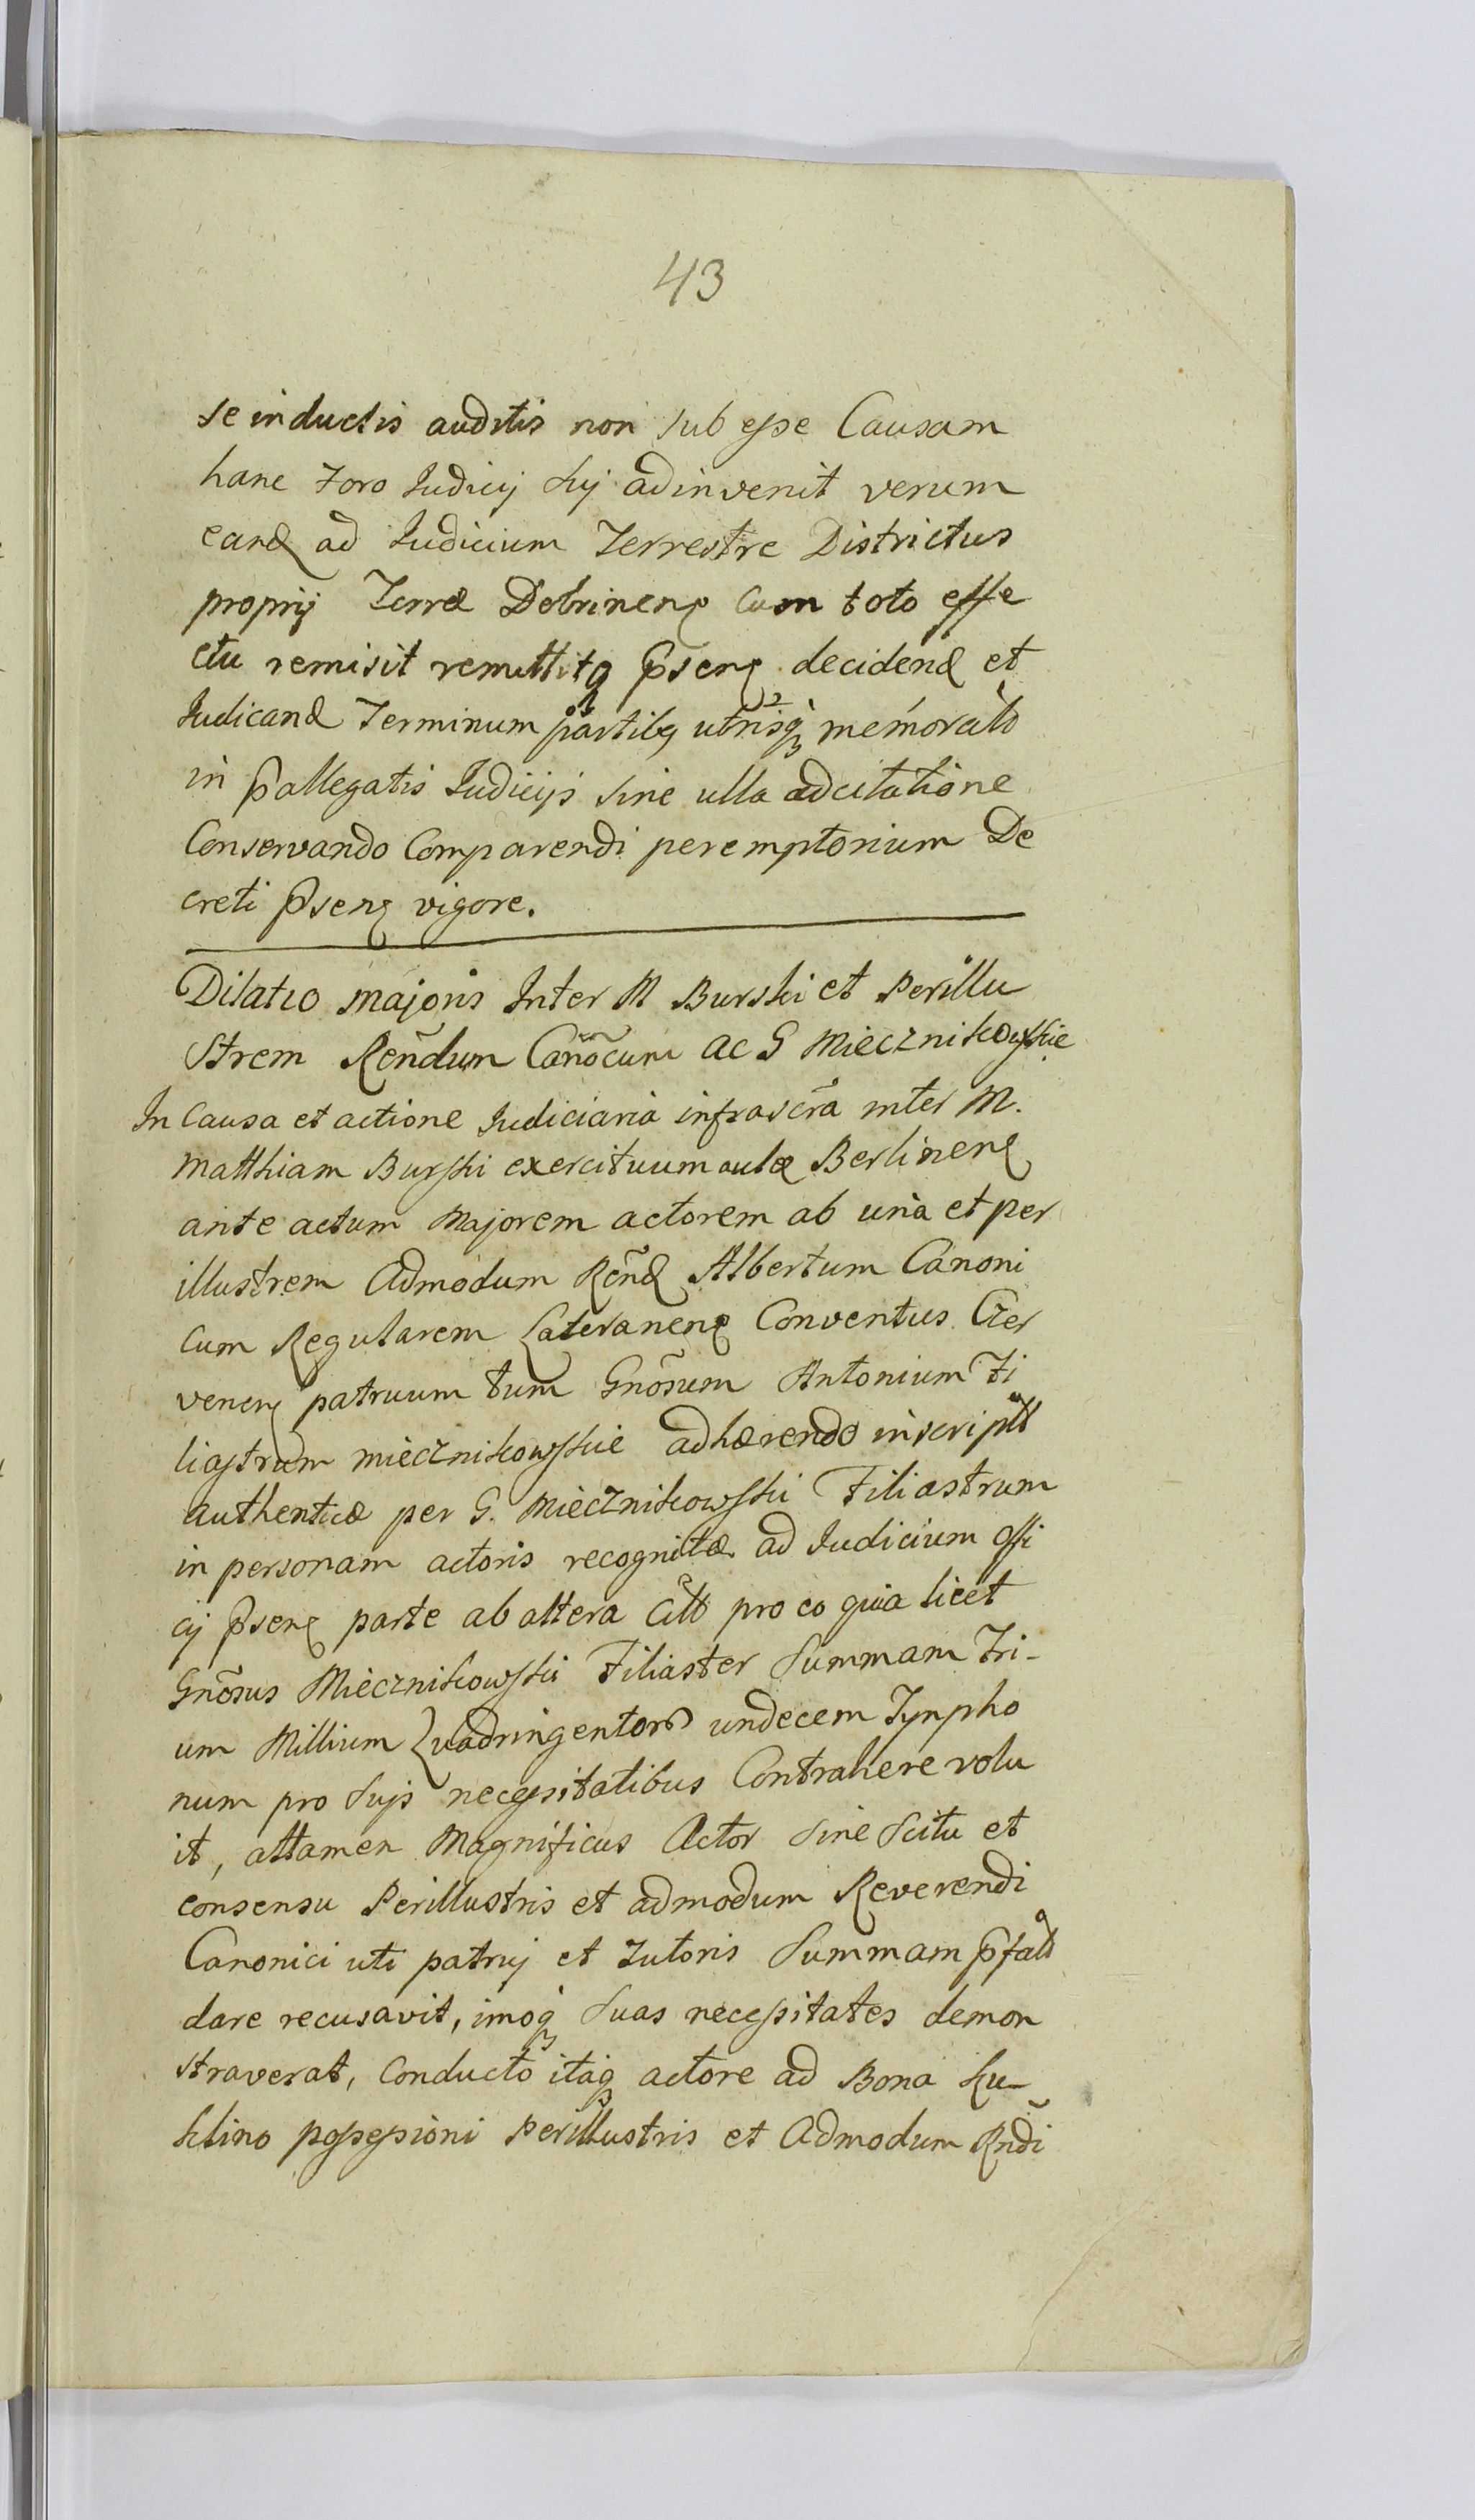 43
se inductis auditis non sub esse Causam
hanc Foro Iudicij Sui adinvenit verum
eand ad Iudicium Terrestre Districtus
proprij Terræ Dobrinen Cum toto effe
ctu remisit remittitq Psen decidend et
Iudicand Terminum partibq utrisq memorato
in Pallegatis Iudicijs sine ulla adcitatione
Conservando Comparendi peremptorium De
creti Psen vigore.
Dilatio majoris Inter M Burski et Perillu
strem Rendum Canocum ac G Miecznikowskie
In Causa et actione Iudiciaria infrascra inter M.
Matthiam Burski exercituum aulæ Berlinen
ante actum Majorem actorem ab una et per
illustrem Admodum Rend Albertum Canoni
cum Regularem Lateranen Conventus Czer
venen patruum tum Gnosum Antonium Fi
liastrum Miecznikowskie adhærendo inscriptt
authenticæ per G. Miecznikowski Filiastrum
in personam actoris recognitæ ad Iudicium offi
cij Psen parte ab altera Citt pro eo quia licet
Gnosus Miecznikowski Filiaster Summam Tri-
um Millium Quadringentor undecem Tynpho
num pro suis necessitatibus Contrahere volu
it, attamen Magnificus Actor sine scitu et
consensu Perillustris et admodum Reverendi
Canonici uti patrui et Tutoris Summam Pfatt
dare recusavit, imoq suas necessitates demon
straverat, Conducto itaq actore ad Bona Ku-
klino possessioni Perillustris et Admodum Rndi